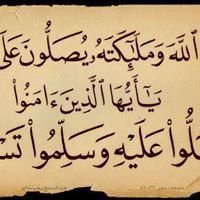 اللَّهَ وَمَلَٰٓئِكَتَهُۥ يُصَلُّونَ عَلَى
يَٰٓأَيُّهَا ٱلَّذِينَ ءَامَنُوا۟
لُّوا۟ عَلَيْهِ وَسَلِّمُوا۟ تَسْ